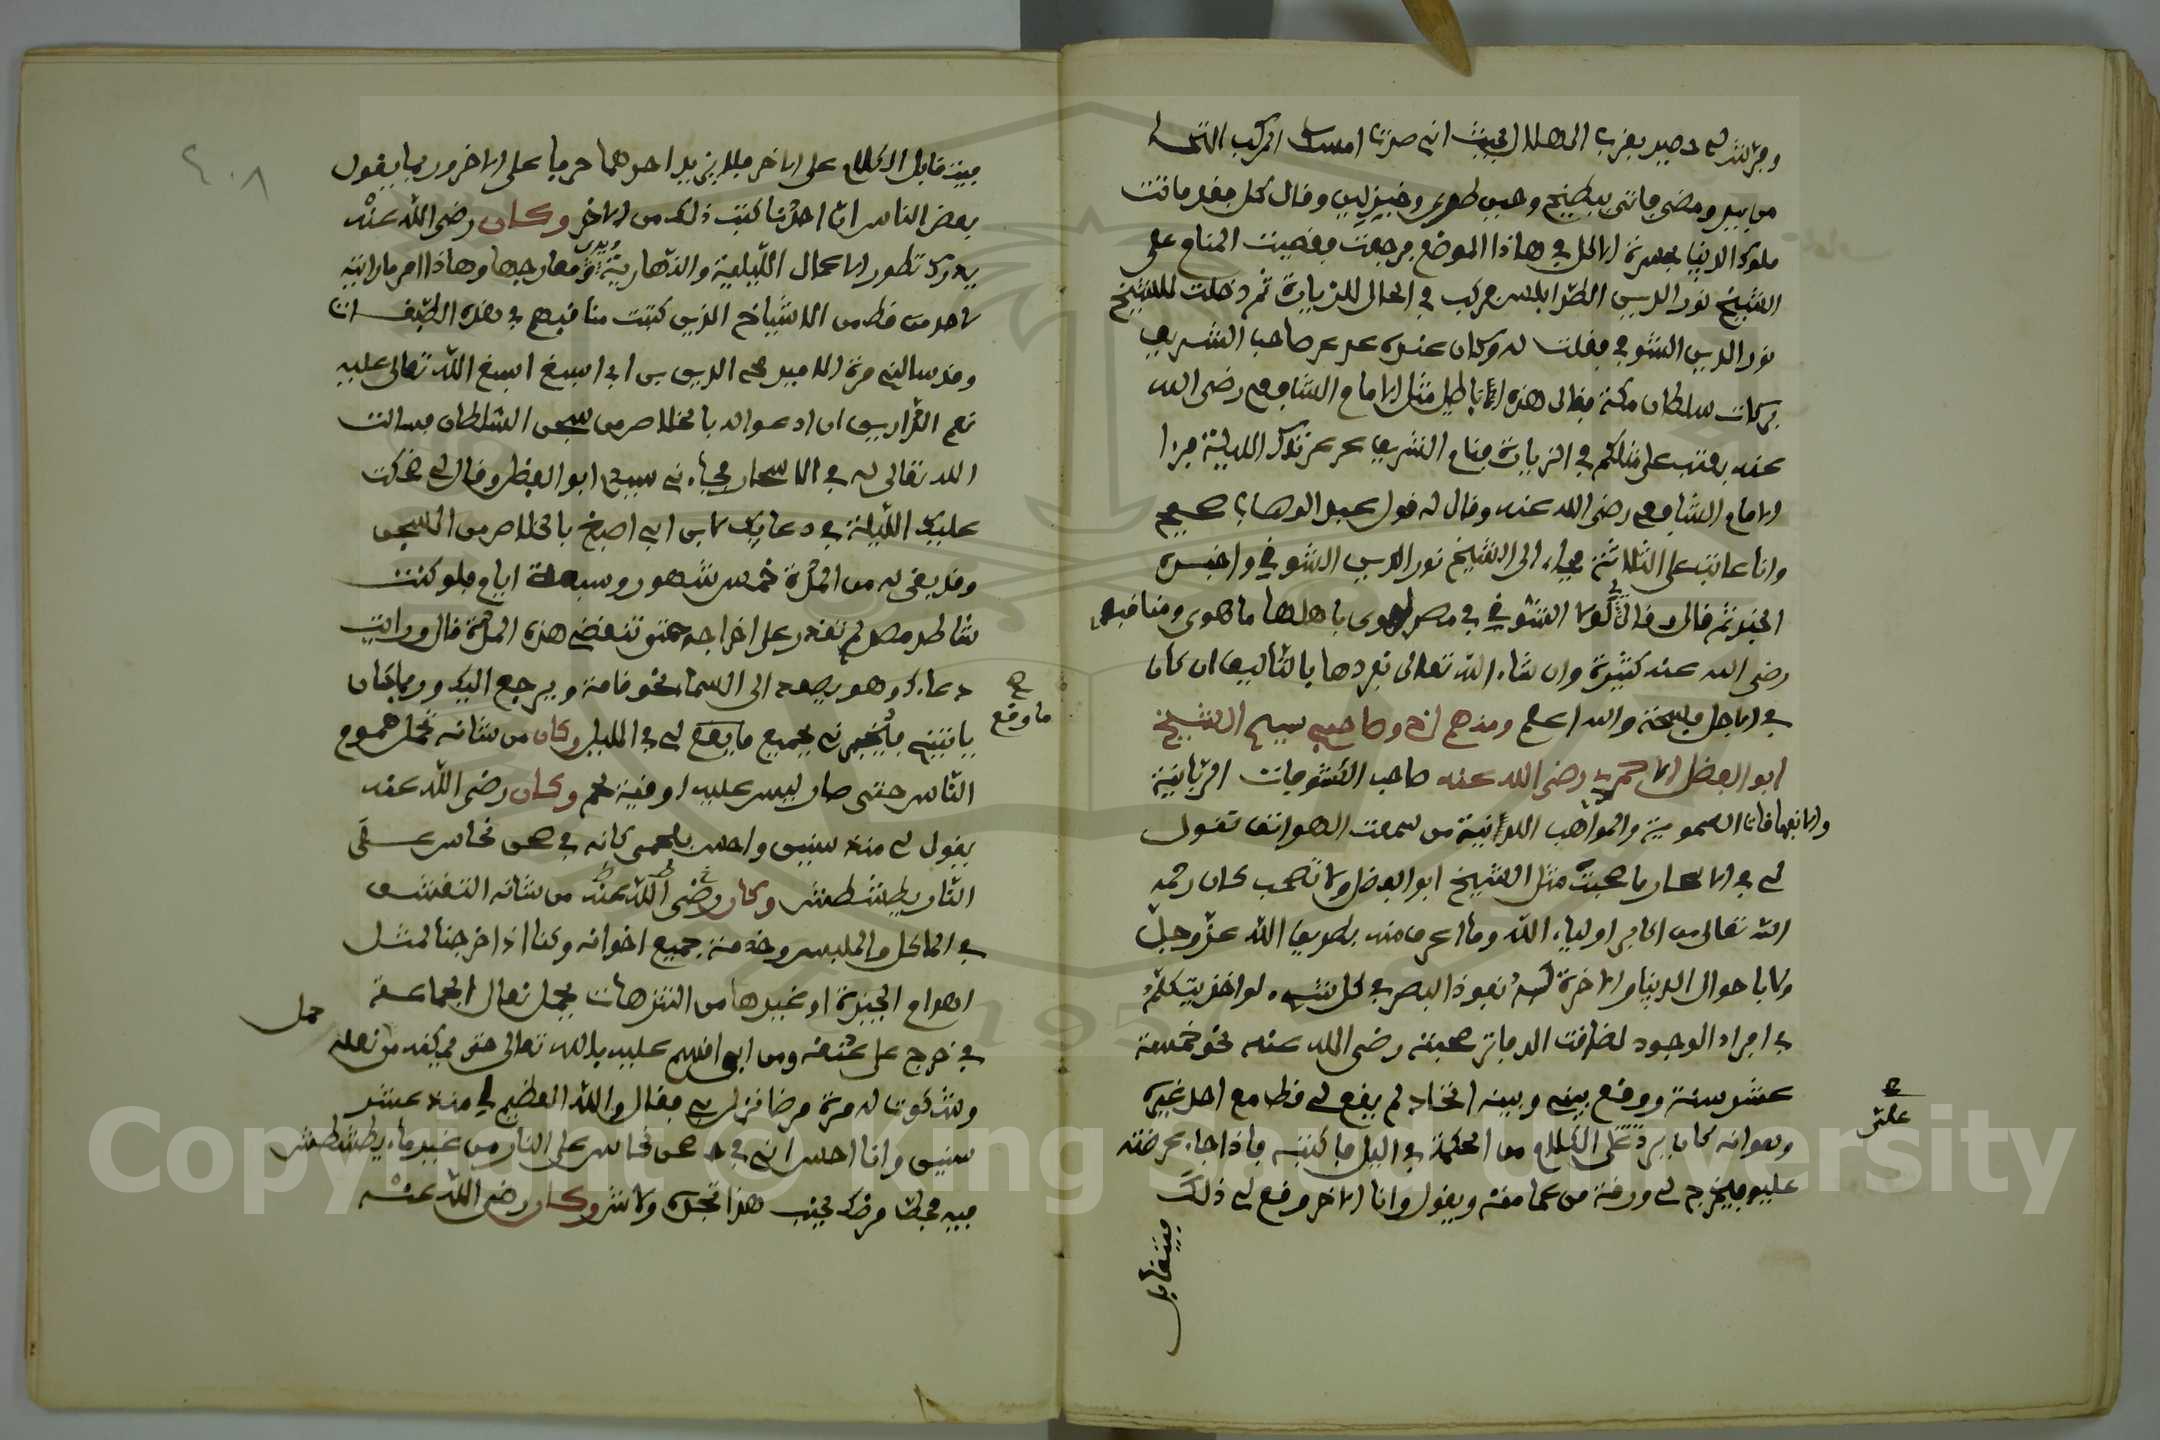 من بيد ومضى فاتني ببطيخ وجبن طري وخبز لين وقال كل فقد ماتت
ملوك الدنيا بحسرة الاكل في هاذا الموضع فرجعت فقصيت المنام على
الشيخ نور الدين الطرابلسي فركب في الحال للزيارة ثم دخلت للشيخ
نور الدين الشوني فقلت له وكان عنده عرعر صاحب الشريف
بركات سلطان مكة فقال هذه اباطيل مثل الامام الشافعي رضي الله
عنه يعتب على مثلكم في الزيارة فنام الشريف عرعر تلك الليلة فرءا
الامام الشافعي رضي الله عنه وقال له قول عبد الوهاب صحيح
وانا عاتب على الثلاثة فجاء الى الشيخ نور الدين الشوني واخبره
الخبر ثم قال وقال لي لولا الشوني في مصر لهوى باهلها ما هوى ومناقبه
رضي الله عنه كثيرة وان شاء الله تعالى نفردها بالتاليف ان كان
في الاجل فسحة والله اعلم ومنهم اخي وصاحبي سيدي الشيخ
ابو الفضل الاحمدي رضي الله عنه صاحب الكشوفات الربانية
والاتفاقات السموية والمواهب اللدنية من سمعت الهواتف تقول
لي في الاسحار ما صحبت مثل الشيخ ابو الفضل ولا تصحب كان رحمه
الله تعالى من اكابر اولياء الله وما اعرف منه بطريق الله عز وجل
ولا باحوال الدنيا والاخرة له نفوذ البصر في كل شيء لو اخذ يتكلم
في افراد الوجود لضاقت الدفاتر صحبته رضي الله عنه نحو خمسة
عشر سنة ووقع بيني وبينه اتحاد لم يقع لي قط مع احد غيره
وهو انه كان يرد علي الكلام من الحكمة في اليل فاكتبه فاذا جاء عرضته
عليه فيخرج لي ورقة من عمامته ويقول وانا الاخر وقع لي ذلك
علي
فيتقابل
فيتقابل الكلام على الاخر فلا يزيد احدهما حرفا على الاخر وربما يقول
بعض الناس ان احدنا كتب ذلك من الاخر وكان رضي الله عنه
يدرك تطور الاعمال الليلية والنهارية ويرى معارجها وهاذا امر ما رايته
لاحد من قط من الاشياخ الذين كتبت مناقبهم في هذه الطبقات
وقد سالني مرة الامير محي الدين بن ابي اصبغ اسبغ الله تعالى عليه
نعم الدارين ان ادعو له بالخلاص من سجن السلطان فسالت
الله تعالى له في الاسحار فجاءني سيدي ابو الفضل وقال لي ضحكت
عليك الليلة في دعايك لابن ابي اصبغ بالخلاص من السجن
وقد بقي له من المدة خمس شهور وسبعة ايام فلو كنت
شاطر مصر لم تقدر على اخراجه حتى تنقضي هذه المدة قال ورايت
دعاك وهو يصعد الى السماء نحو قامة ويرجع اليك وربما كان
ياتيني فيخبرني بجميع ما يقع لي في الليل وكان من شانه تحمل هموم
ما وقع
الناس حتى صار ليس عليه اوقية لحم وكان رضي الله عنه
يقول لي منذ سنين واحس بلحمي كانه في صحن نحاس على
النار يطشطش وكان رضي الله عنه من شانه التقشف
في الماكل والملبس وخدمة جميع اخوانه وكنا اذا خرجنا لمثل
اهرام الجيزة او غيرها من التنزهات يحمل نعال الجماعة
حمل
في خرج على عنقه ومن ابى اقسم عليه بالله تعالى حتى يمكنه من نعله
وشكوت له مرة مرضا نزل بي فقال والله العظيم لي منذ عشر
سنين وانا احس اني في صحن نحاس على النار من غير ماء يطشطش
فيه فحط مرضك بجنب هذا تجده ولا شيء وكان رضي الله عنه
٢٠٨